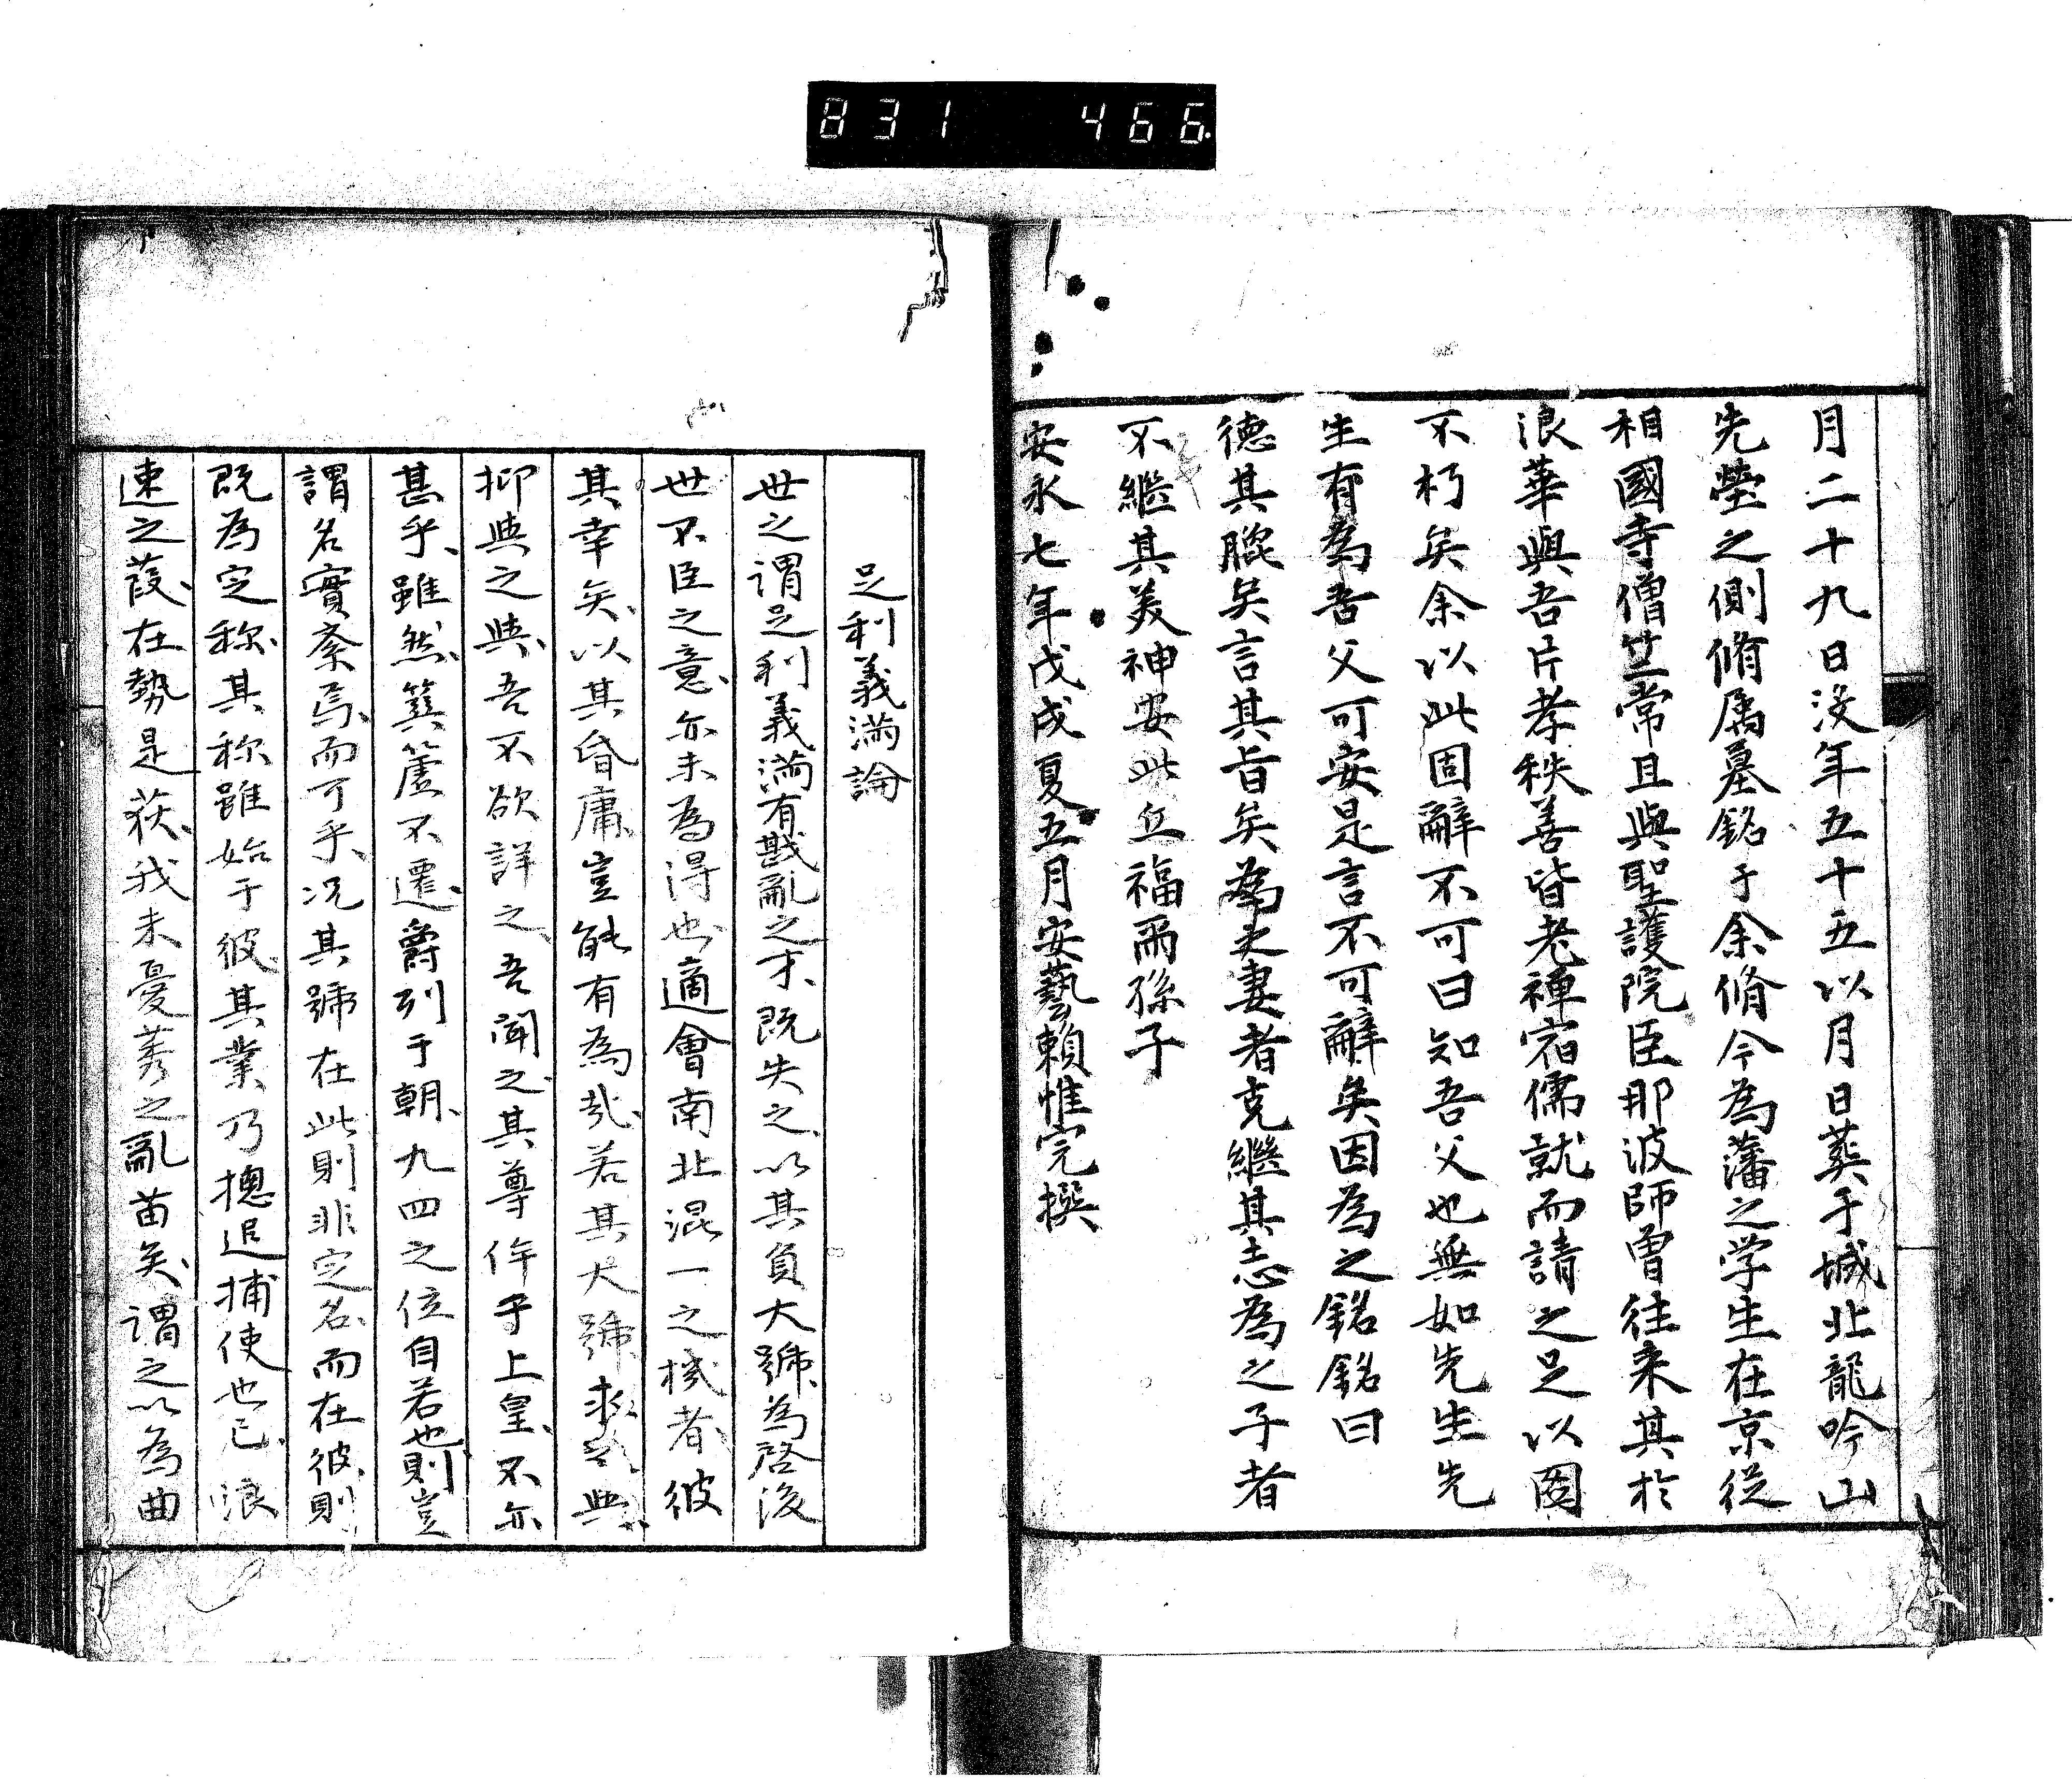 831 466
月二十九日没年五十五以月日葬于城北龍吟山
先塋之側脩属墓銘于余脩今為藩之学生在京従
相國寺僧竺常且與聖護院臣那波師曽往来其於
浪華與吾片孝秩善皆老禅宿儒就而請之足以圖
不朽矣余以此固辭不可曰知吾父也無如先生先
生有為吾父可安是言不可辭矣因為之銘銘曰
徳其腍矣言其旨矣為之妻者克繼其志為之子者
不繼其美神安此丘福而孫子
安永七年戊戌夏五月安藝頼惟完撰
足利義満論
世之謂足利義満有戡亂之才、既失之、以其負大號為啓後
世不臣之意、亦未為得也、適會南北混一之機者、彼
其幸矣、以其昏庸、豈能有為哉、若其大號、求與
抑與之與、吾不欲詳之、吾聞之、其尊侔乎上皇、不亦
甚乎、雖然、簨簴不遷、爵列于朝、九四之位自若也、則豈
謂名實紊焉、而可乎、况其號在此則非定名、而在彼、則
既為定称、其称雖始于彼、其業乃摠追捕使也已、浪
速之葭、在勢是荻、我未憂莠之亂苗矣、謂之以為曲